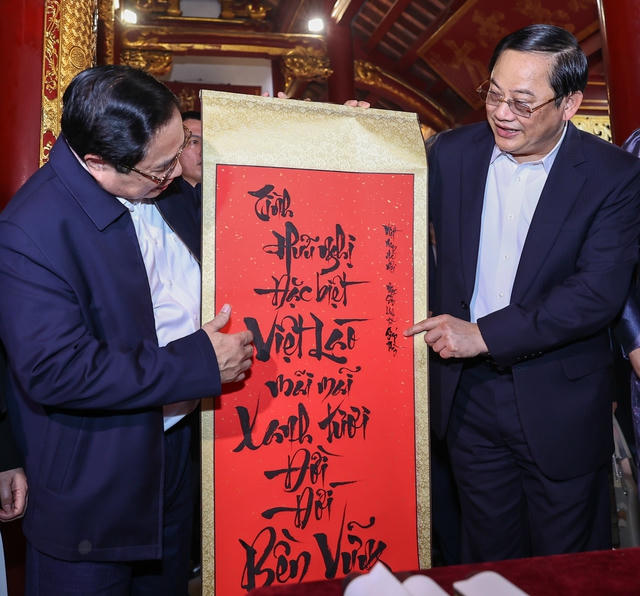 Tình
Hữu nghị
Đặc biệt
Việt Lào
mãi mãi
Xanh tươi
Đời
Đời
Bền Vững